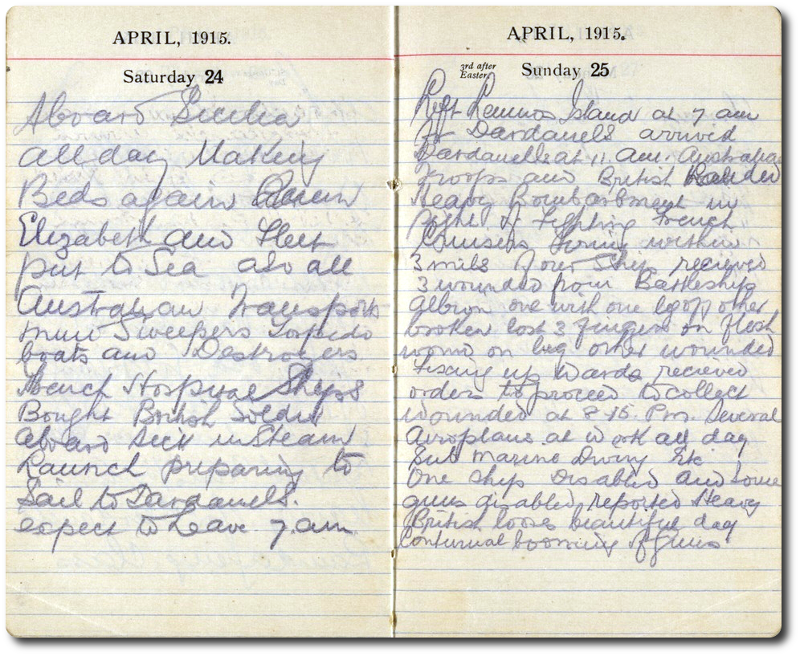 APRIL, 1915.
Saturday 24
Aboard Sicilia
all day Making
Beds again Queen
Elizabeth and Fleet
put to Sea also all
Australian Transports
mine Sweepers Torpedo
boats and Destroyers
French Hospital Ships
Bought British Soldier
aboard Sick in Steam
Launch preparing to
Sail to Dardanels.
expect to Leave 7. am.
APRIL, 1915.
3rd after Easter.
Sunday 25
Left Lemnos Island at 7 am
for Dardanels arrived
Dardanells at 11 am. Australian
Troops and British landed
Heavy Bombardment in
sight of Fighting French
Cruisers firing within
3 mils of our Ship recieved
3 wounded from Battleship
Albion one with one leg off other
broken lost 3 fingers on flesh
wound on leg other wounded
Fixing up Wards recieved
orders to proceed to collect
wounded at 8-15. Pm. several
Aeroplans at work all day
Sub marine Diving Etc.
One ship Disabled and some
guns disabled, reported Heavy
British loses beautiful day
Continual booming of guns